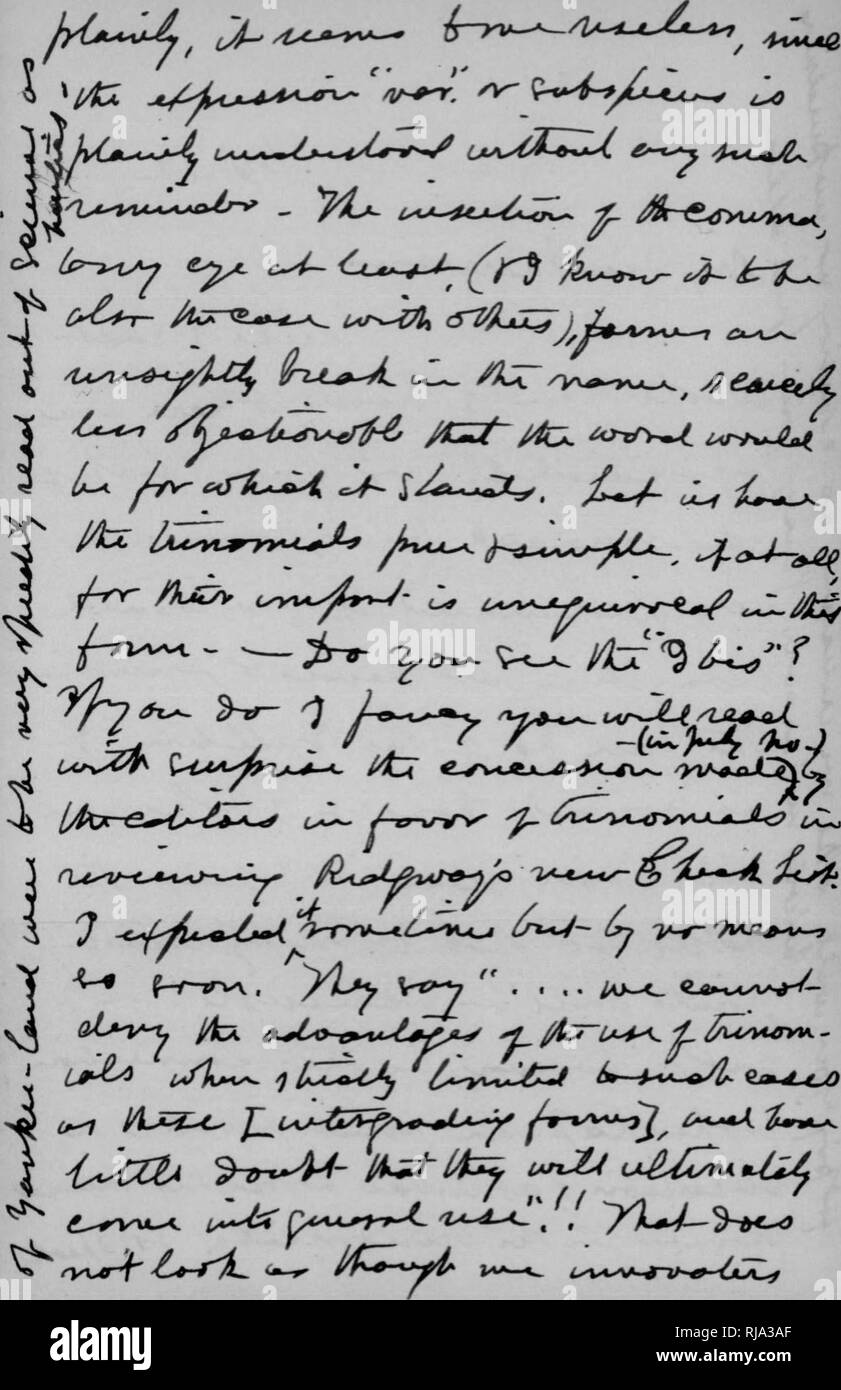 plainly, it seems to me useless, since
the expression "var." or subspecies is
plainly understood without any such
reminder - The insertion of the comma,
to my eye at least, (& I know it to be
also the case with others), forms an
unsightly break in the name, scarcely
less objectionable that the word would
be for which it stands. Let us have
the trinomials pure & simple, if at all,
for their import is unequivocal in this
form - — Do you see the "Ibis"?
If you do I fancy you will read
with surprise the concession made -(in July no-) by
the editors in favor of trinomials in
reviewing Ridgway's new Check List.
I expected it sometime but by no means
so soon. They say ".... we cannot
deny the advantages of the use of trinom-
ials when strictly limited to such cases
as these [intergrading forms], and have
little doubt that they will ultimately
come into general use".!! That does
not look as though we innovators
of Yankee-land were to be very speedily read out of Science as
alamy
Image ID: RJA3AF
www.alamy.com